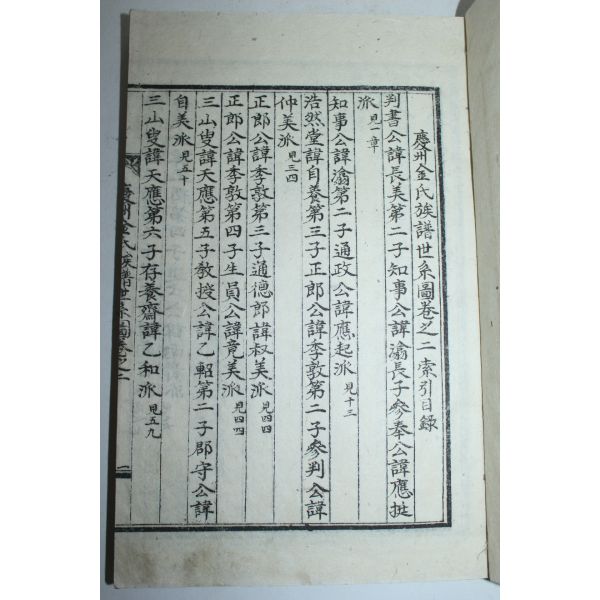 慶州金氏族譜世系圖卷之二索引目錄
判書公諱長美第二子知事公諱滃長子參奉公諱應挻
派見一章
知事公諱滃第二子通政公諱應起派見十三
浩然堂諱自養第三子正郎公諱季敦第二子參判公諱
仲美派見三四
正郎公諱季敦第三子通德郎諱叔美派見四四
正郎公諱季敦第四子生員公諱竟美派見四四
三山叟諱天應第五子教授公諱乙軺第二子郡守公諱
自美派見五十
三山叟諱天應第六子存養齋諱乙和派見五九
慶州金氏族譜世系圖卷之二
一